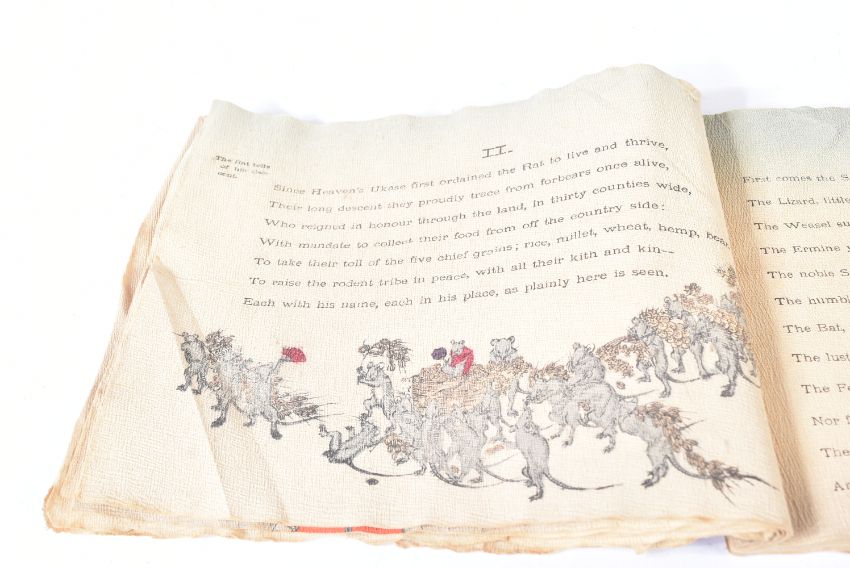 II.
The Rat tells
of his des-
cent.
Since Heaven's Ukase first ordained the Rat to live and thrive,
Their long descent they proudly trace from forbears once alive,
Who reigned in honour through the land, in thirty counties wide,
With mandate to collect their food from off the country side:
To take their toll of the five chief grains; rice, millet, wheat, hemp, bean,
To raise the rodent tribe in peace, with all their kith and kin--
Each with his name, each in his place, as plainly here is seen.
First comes the S
The Lizard, little
The Weasel su
The Ermine
The noble S
The humbl
The Bat,
The lust
The Fe
Nor f
The
An